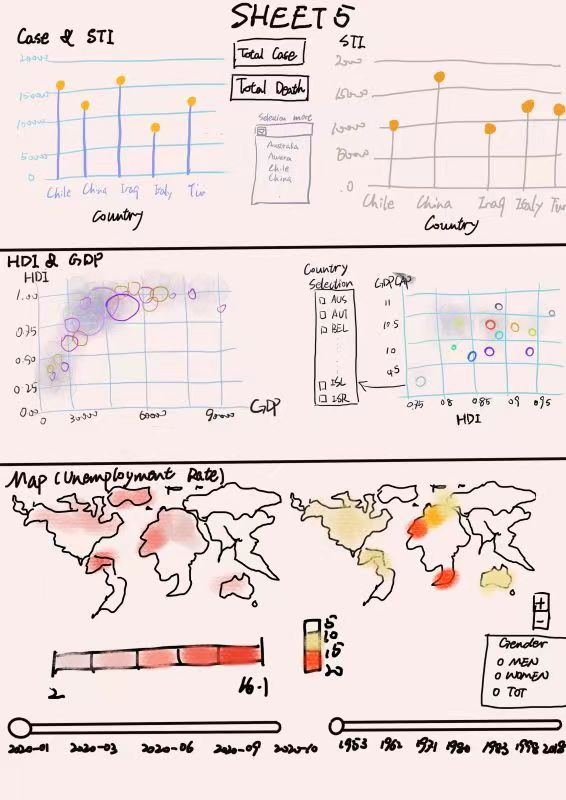 SHEET 5
Case & STI
Total Case
Total Death
STI
20000
15000
10000
50000
0
Chile China Iraq Italy Tur
Country
Selection more
Australia
Chile
China
2000
15000
10000
.0
Chile China Iraq Italy Tur
Country
HDI & GDP
HDI
1.00
0.75
0.50
0.25
0.00
0 30000 60000 90000
GDP
Country
Selection
AUS
AUT
BEL
ISL
ISR
11
10.5
10
9.5
0.75 0.8 0.85 0.9 0.95
HDI
Map (Unemployment Rate)
2 16.1
5
10
15
20
+
-
Gender
MEN
WOMEN
TOT
2020-01 2020-03 2020-06 2020-09 2020-10
1953 1962 1971 1980 1983 1998 2018